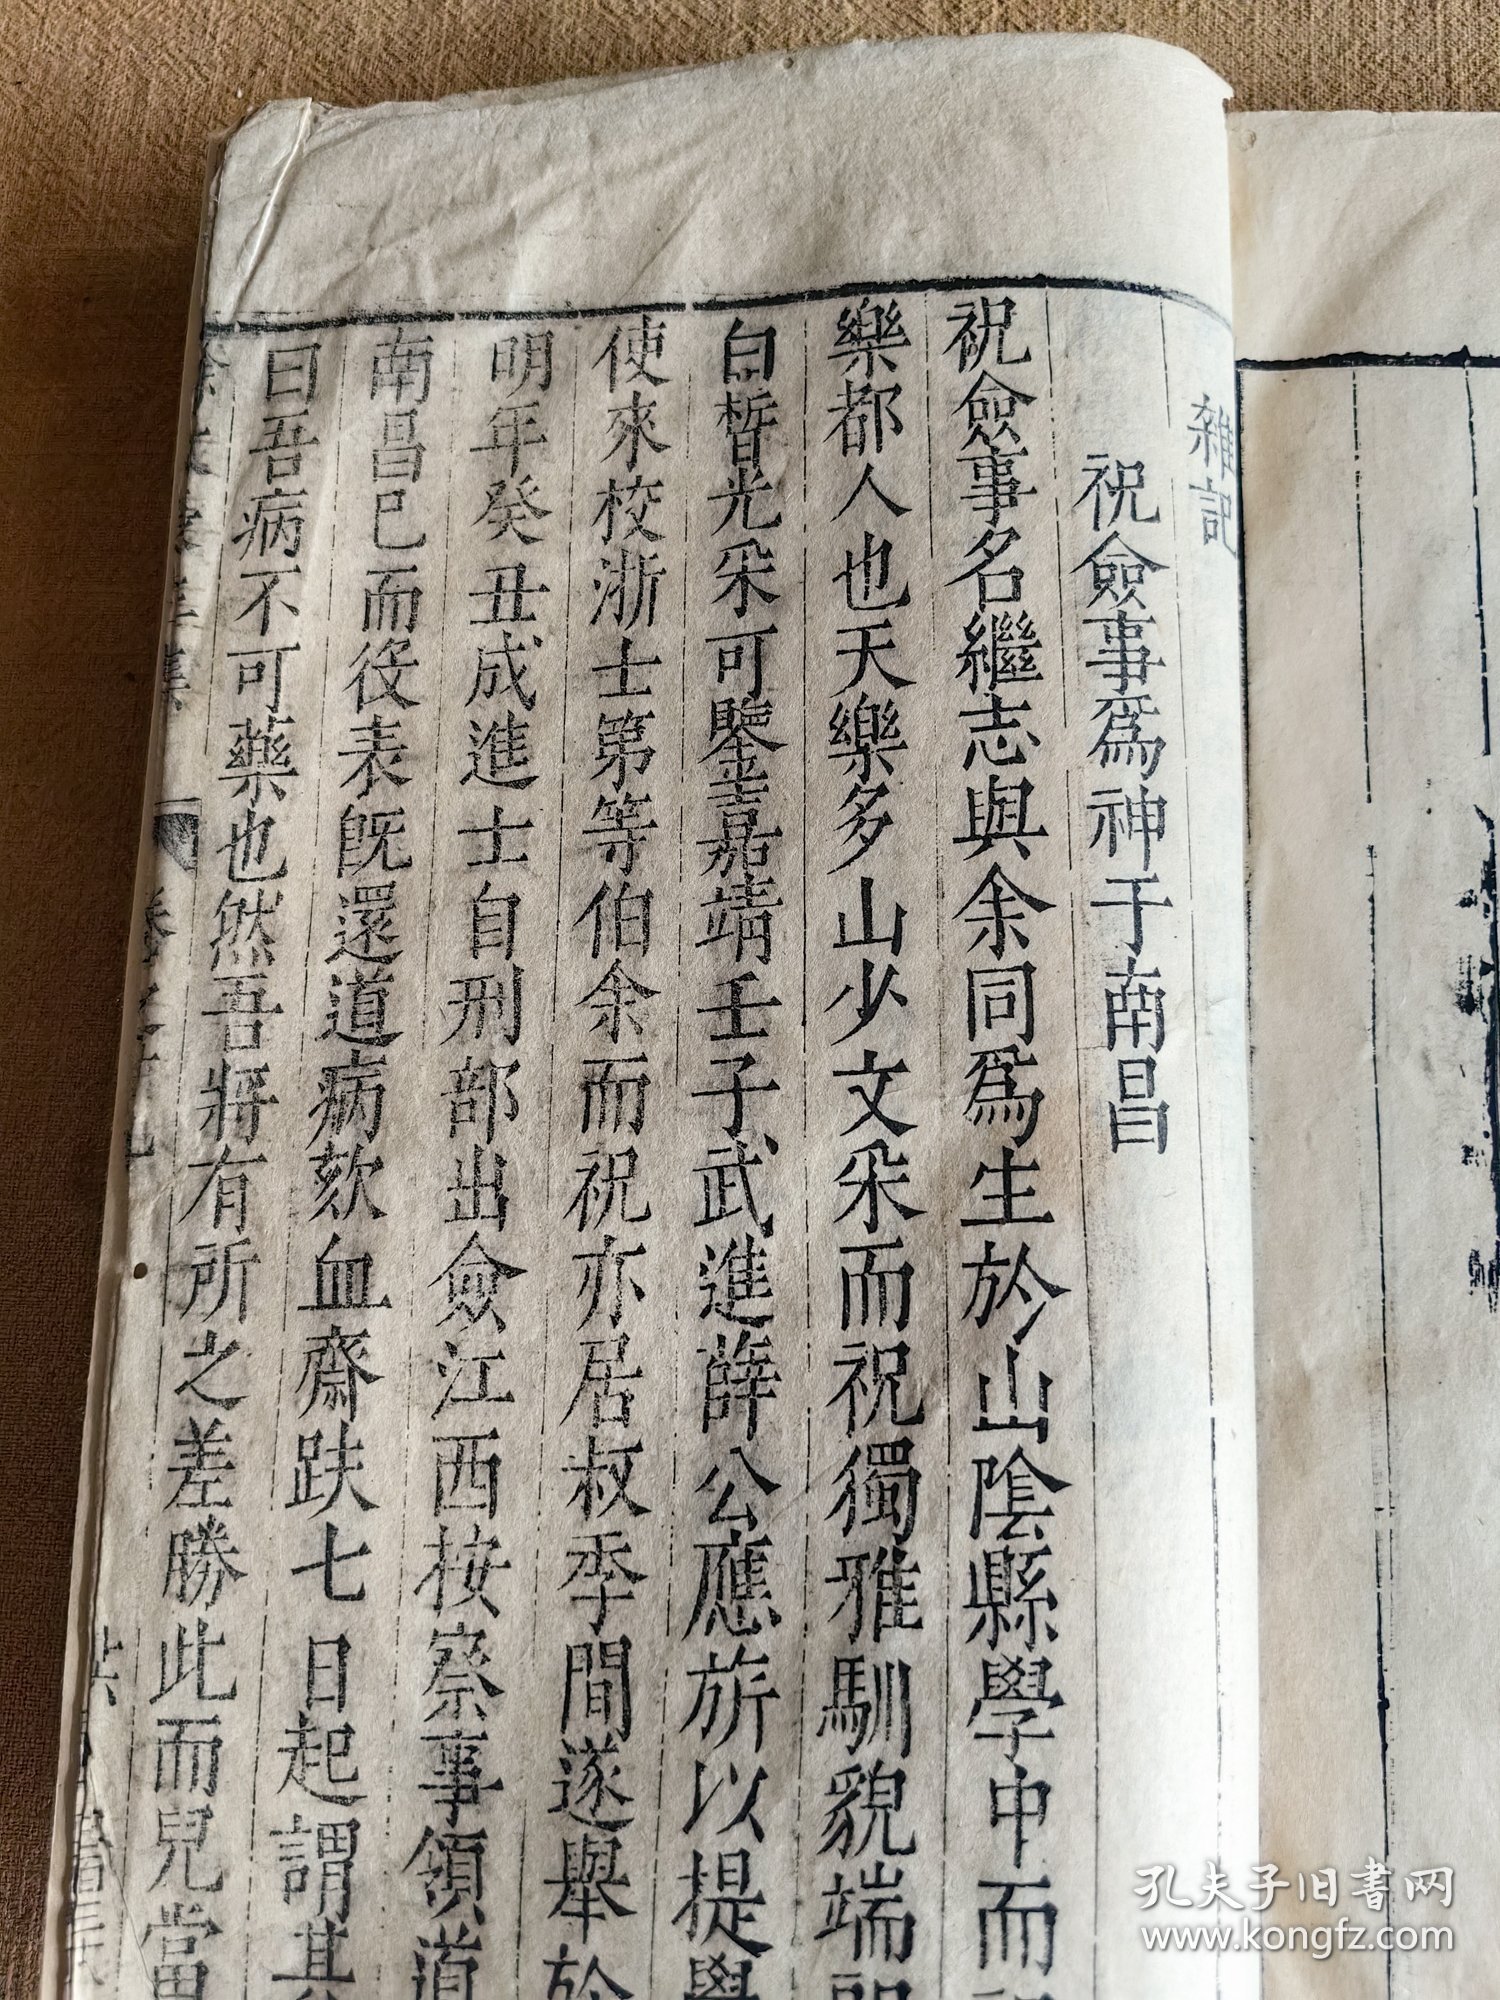 雜記
祝僉事爲神于南昌
祝僉事名繼志與余同爲生於山陰縣學中而
樂都人也天樂多山少文采而祝獨雅馴貌端
白晳光采可鑒嘉靖壬子武進薛公應旂以提學
使來校浙士第等伯余而祝亦居叔季間遂舉於
明年癸丑成進士自刑部出僉江西按察事領道
南昌已而役表旣還道病欬血齋趺七日起謂其
曰吾病不可藥也然吾將有所之差勝此而兒當
孔夫子旧书网
www.kongfz.com